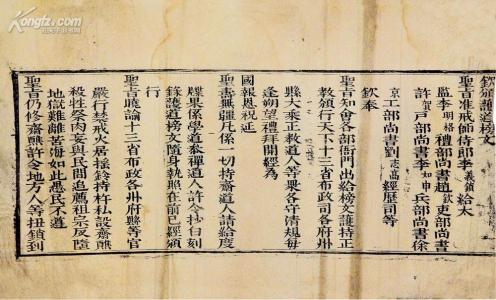 Kongfz.com
欽頒護道榜文
聖旨准戒師侍郎李義鎮給太
監李明格禮部尚書趙欽吏部尚書
許賀戶部尚書李如申兵部尚書徐
京工部尚書劉志高經歷司等
欽奉
聖旨知會各部衙門出給榜文護持正
教頒行天下十三省布政司各府州
縣大乘正教道人等衆各守清規每
逢朔望禮拜開經為
國報恩祝延
聖壽無疆凡係一切持齋道人請給度
牒果係學道參禪道人許令抄白刻
錄護道榜文隨身執照在前已經頒
行
聖旨曉諭十三省布政各州府縣等官
嚴行禁戒火居搖鈴持杵私設齋醮
殺牲祭肉妄與民間追薦祖宗反墮
地獄難離苦海如此愚民不遵
聖旨仍修齋醮許令地方人等扭鎖到